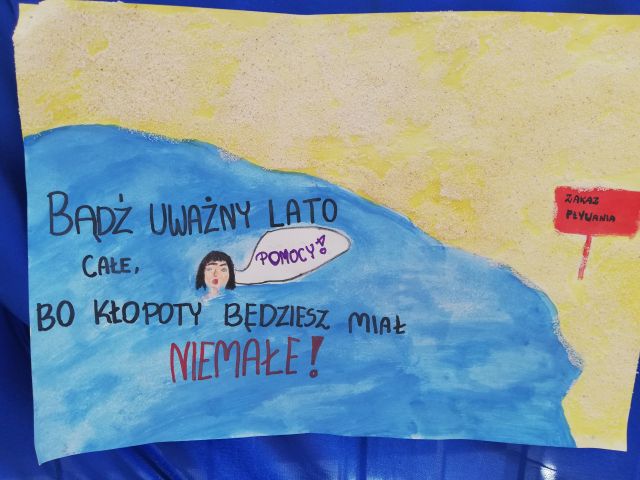 BĄDŹ UWAŻNY LATO
CAŁE,
POMOCY!
BO KŁOPOTY BĘDZIESZ MIAŁ
NIEMAŁE!
ZAKAZ
PŁYWANIA